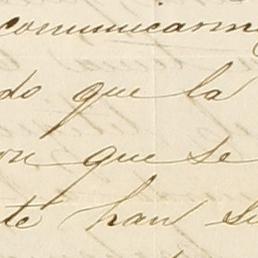 comunicarm
do que la
on que se
te han su